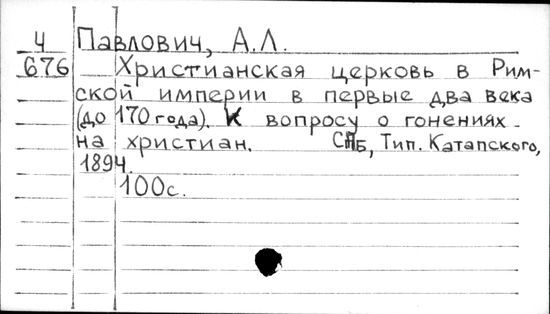 Ч Павлович, А.Л.
676 Христианская церковь в Рим-
ской империи в первые два века
(до 170 года). К вопросу о гонениях
на христиан. СПБ, Тип. Катапского,
1894.
100с.